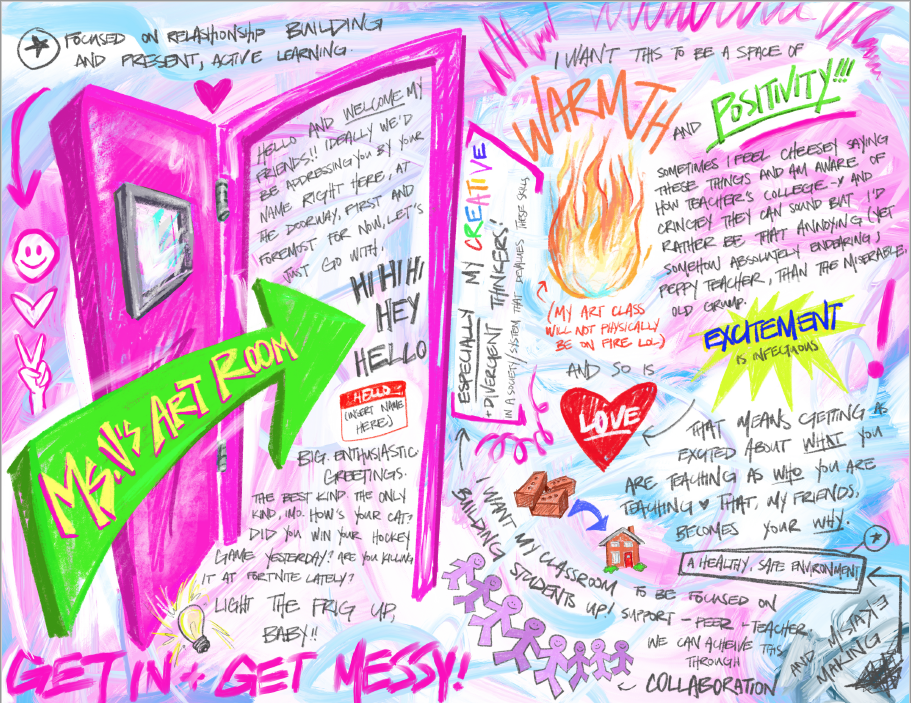 FOCUSED ON RELATIONSHIP BUILDING
AND PRESENT, ACTIVE LEARNING.
HELLO AND WELCOME MY
FRIENDS!! IDEALLY WE'D
BE ADDRESSING YOU BY YOUR
NAME RIGHT HERE, AT
THE DOORWAY, FIRST AND
FOREMOST FOR NOW, LET'S
JUST GO WITH,
HI HI HI
HEY
HELLO
HELLO
(INSERT NAME
HERE)
BIG. ENTHUSIASTIC.
GREETINGS.
THE BEST KIND. THE ONLY
KIND, IMO. HOW'S YOUR CAT?
DID YOU WIN YOUR HOCKEY
GAME YESTERDAY? ARE YOU KILLING
IT AT FORTNITE LATELY?
LIGHT THE FRIG UP,
BABY!!
MS. V'S ART ROOM
GET IN + GET MESSY!
ESPECIALLY MY CREATIVE
+ DIVERGENT THINKERS!
IN A SOCIETY/SYSTEM THAT DEVALUES THESE SKILLS
I WANT THIS TO BE A SPACE OF
WARMTH
AND POSITIVITY!!!
SOMETIMES I FEEL CHEESEY SAYING
THESE THINGS AND AM AWARE OF
HOW TEACHER'S COLLEGE-Y AND
CRINGEY THEY CAN SOUND BUT I'D
RATHER BE THAT ANNOYING (YET
SOMEHOW ABSOLUTELY ENDEARING)
PEPPY TEACHER, THAN THE MISERABLE,
OLD GRUMP.
(MY ART CLASS
WILL NOT PHYSICALLY
BE ON FIRE LOL)
EXCITEMENT
IS INFECTIOUS
AND SO IS
LOVE
THAT MEANS GETTING AS
EXCITED ABOUT WHAT YOU
ARE TEACHING AS WHO YOU ARE
TEACHING ♥ THAT, MY FRIENDS,
BECOMES YOUR WHY.
I WANT MY CLASSROOM TO BE FOCUSED ON
BUILDING STUDENTS UP! SUPPORT - PEER + TEACHER.
WE CAN ACHEIVE THIS
THROUGH
COLLABORATION
AND MISTAKE
MAKING
A HEALTHY, SAFE ENVIRONMENT